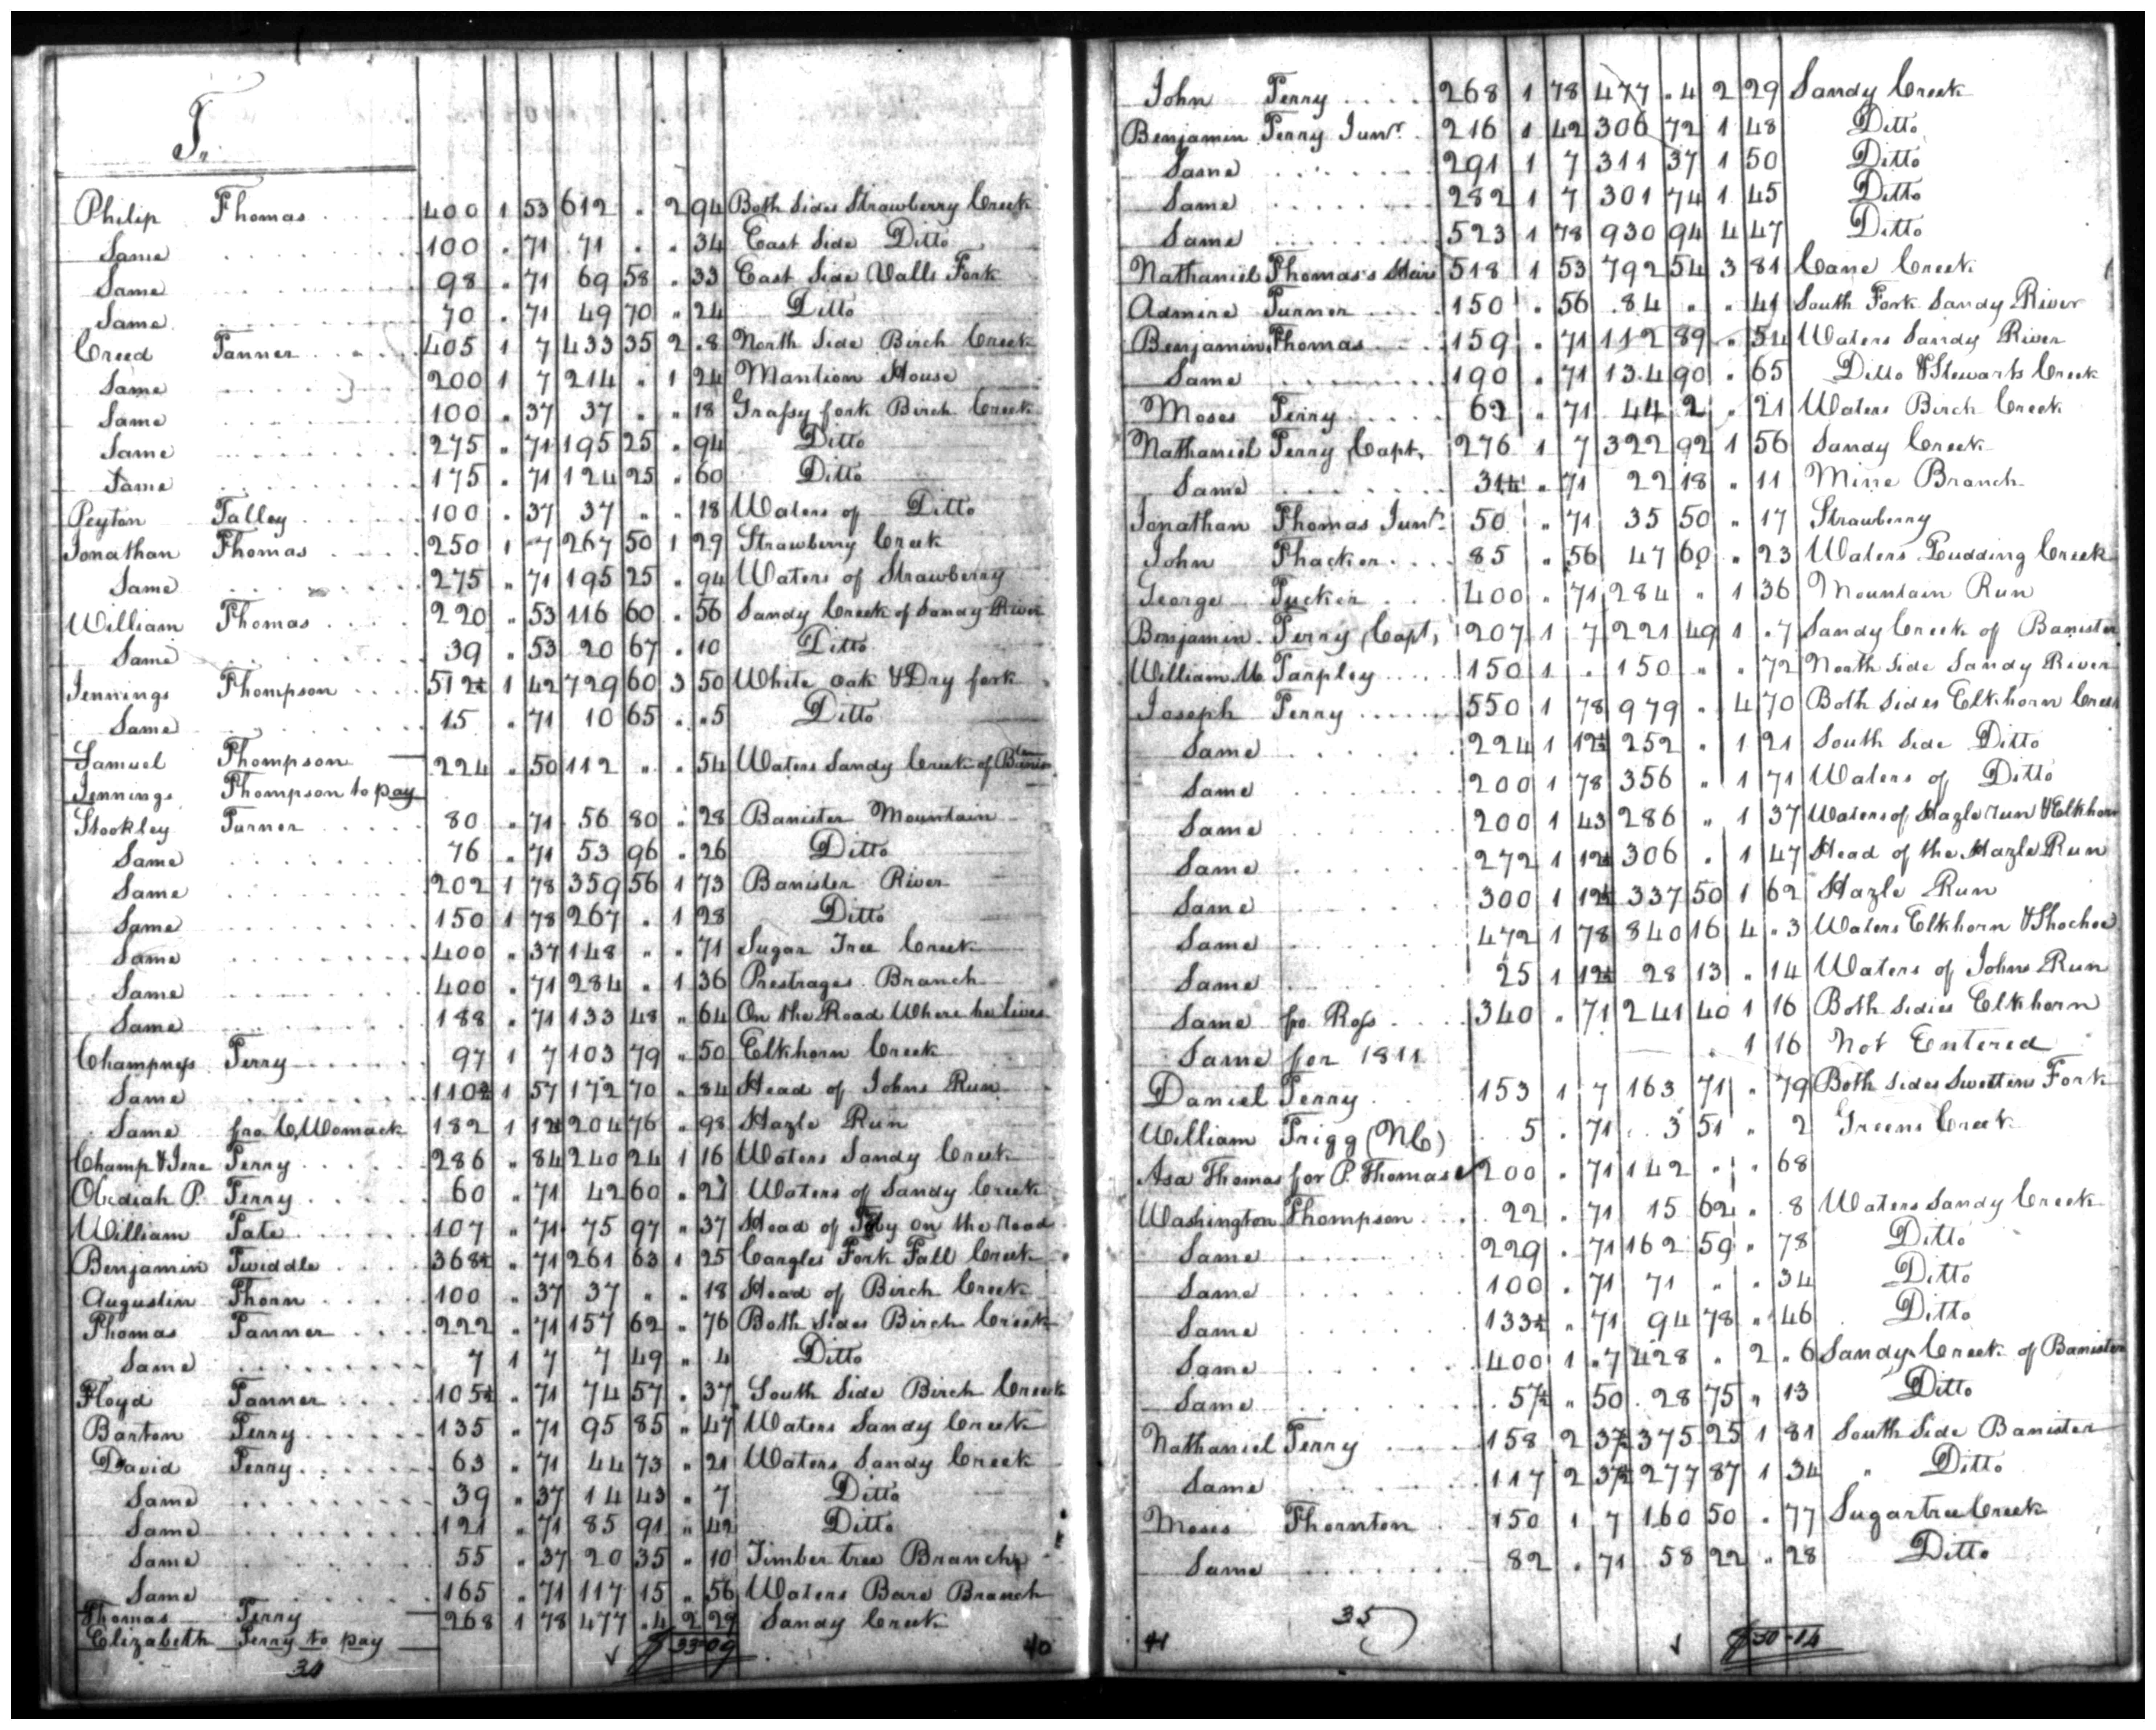 T.
Philip Thomas 400 1 53 612 " 2 94 Both Sides Strawberry Creek
Same 100 " 71 71 " " 34 East Side Ditto
Same 98 " 71 69 58 " 33 East Side Valls Fork
Same 70 " 71 49 70 " 24 Ditto
Creed Tanner 405 1 7 433 35 2 .8 North Side Birch Creek
Same 200 1 7 214 " 1 24 Mantion House
Same 100 " 37 37 " " 18 Grassy fork Birch Creek
Same 275 " 71 195 25 " 94 Ditto
Same 175 " 71 124 25 " 60 Ditto
Peyton Talley 100 " 37 37 " " 18 Waters of Ditto
Jonathan Thomas 250 1 7 267 50 1 29 Strawberry Creek
Same 275 " 71 195 25 " 94 Waters of Strawberry
William Thomas 220 " 53 116 60 " 56 Sandy Creek of Sandy River
Same 39 " 53 20 67 " 10 Ditto
Jennings Thompson 512½ 1 42 729 60 3 50 White oak & Dry fork
Same 15 " 71 10 65 " .5 Ditto
Samuel Thompson 224 " 50 112 " " 54 Waters Sandy Creek of Banister
Jennings Thompson to pay
Stockley Turner 80 " 71 56 80 " 28 Banister Mountain
Same 76 " 71 53 96 " 26 Ditto
Same 202 1 78 359 56 1 73 Banister River
Same 150 1 78 267 " 1 28 Ditto
Same 400 " 37 148 " " 71 Sugar Tree Creek
Same 400 " 71 284 " 1 36 Prestrages Branch
Same 188 " 71 133 48 " 64 On the Road Where he lives
Champness Terry 97 1 7 103 79 " 50 Elkhorn Creek
Same 110½ 1 57 172 70 " 84 Head of Johns Run
Same fro. C. Womack 182 1 12½ 204 76 " 98 Hazle Run
Champ & Jere Terry 286 " 84 240 24 1 16 Waters Sandy Creek
Obediah P. Terry 60 " 71 42 60 " 21 Waters of Sandy Creek
William Tate 107 " 71 75 97 " 37 Head of on the road
Benjamin Twiddle 368½ " 71 261 63 1 25 Cargles Fork Fall Creek
Augustin Thorn 100 " 37 37 " " 18 Head of Birch Creek
Thomas Tanner 222 " 71 157 62 " 76 Both Sides Birch Creek
Same 7 1 7 7 49 " 4 Ditto
Floyd Tanner 105½ " 71 74 57 " 37 South Side Birch Creek
Barton Terry 135 " 71 95 85 " 47 Waters Sandy Creek
David Terry 63 " 71 44 73 " 21 Waters Sandy Creek
Same 39 " 37 14 43 " 7 Ditto
Same 121 " 71 85 91 " 42 Ditto
Same 55 " 37 20 35 " 10 Timber tree Branch
Same 165 " 71 117 15 " 56 Waters Bare Branch
Thomas Terry 268 1 78 477 .4 2 29 Sandy Creek
Elizabeth Terry to pay
34 $33=09 40
John Terry 268 1 78 477 .4 2 29 Sandy Creek
Benjamin Terry Junr. 216 1 42 306 72 1 48 Ditto
Same 291 1 7 311 37 1 50 Ditto
Same 282 1 7 301 74 1 45 Ditto
Same 523 1 78 930 94 4 47 Ditto
Nathaniel Thomas's Heirs 518 1 53 792 54 3 81 Cane Creek
Admire Turner 150 " 56 84 " " 41 South Fork Sandy River
Benjamin Thomas 159 " 71 112 89 " 54 Waters Sandy River
Same 190 " 71 134 90 " 65 Ditto & Stewarts Creek
Moses Terry 62 " 71 44 2 " 21 Waters Birch Creek
Nathaniel Terry Capt. 276 1 7 322 92 1 56 Sandy Creek
Same 31¼ " 71 22 18 " 11 Mine Branch
Jonathan Thomas Junr. 50 " 71 35 50 " 17 Strawberry
John Thacker 85 " 56 47 60 " 23 Waters Pudding Creek
George Tucker 400 " 71 284 " 1 36 Mountain Run
Benjamin Terry Capt. 207 1 7 221 49 1 .7 Sandy Creek of Banister
William M. Tarpley 150 1 " 150 " " 72 North Side Sandy River
Joseph Terry 550 1 78 979 " 4 70 Both Sides Elkhorn Creek
Same 224 1 12½ 252 " 1 21 South Side Ditto
Same 200 1 78 356 " 1 71 Waters of Ditto
Same 200 1 43 286 " 1 37 Waters of Hazle run & Elkhorn
Same 272 1 12½ 306 " 1 47 Head of the Hazle Run
Same 300 1 12½ 337 50 1 62 Hazle Run
Same 472 1 78 840 16 4 .3 Waters Elkhorn & Shochoe
Same 25 1 12½ 28 13 " 14 Waters of Johns Run
Same fro. Ross 340 " 71 241 40 1 16 Both Sides Elkhorn
Same for 1811 1 16 Not Entered
Daniel Terry 153 1 7 163 71 " 79 Both Sides Sweetens Fork
William Trigg (NC) 5 " 71 3 51 " 2 Greens Creek
Asa Thomas for P. Thomas 200 " 71 142 " " 68
Washington Thompson 22 " 71 15 62 " 8 Waters Sandy Creek
Same 229 " 71 162 59 " 78 Ditto
Same 100 " 71 71 " " 34 Ditto
Same 133½ " 71 94 78 " 46 Ditto
Same 400 1 7 428 " 2 .6 Sandy Creek of Banister
Same 57½ " 50 28 75 " 13 Ditto
Nathaniel Terry 158 2 37½ 375 25 1 81 South Side Banister
Same 117 2 37½ 277 87 1 34 " Ditto
Moses Thornton 150 1 7 160 50 " 77 Sugartree Creek
Same 82 " 71 58 22 " 28 Ditto
41 35 $50-14